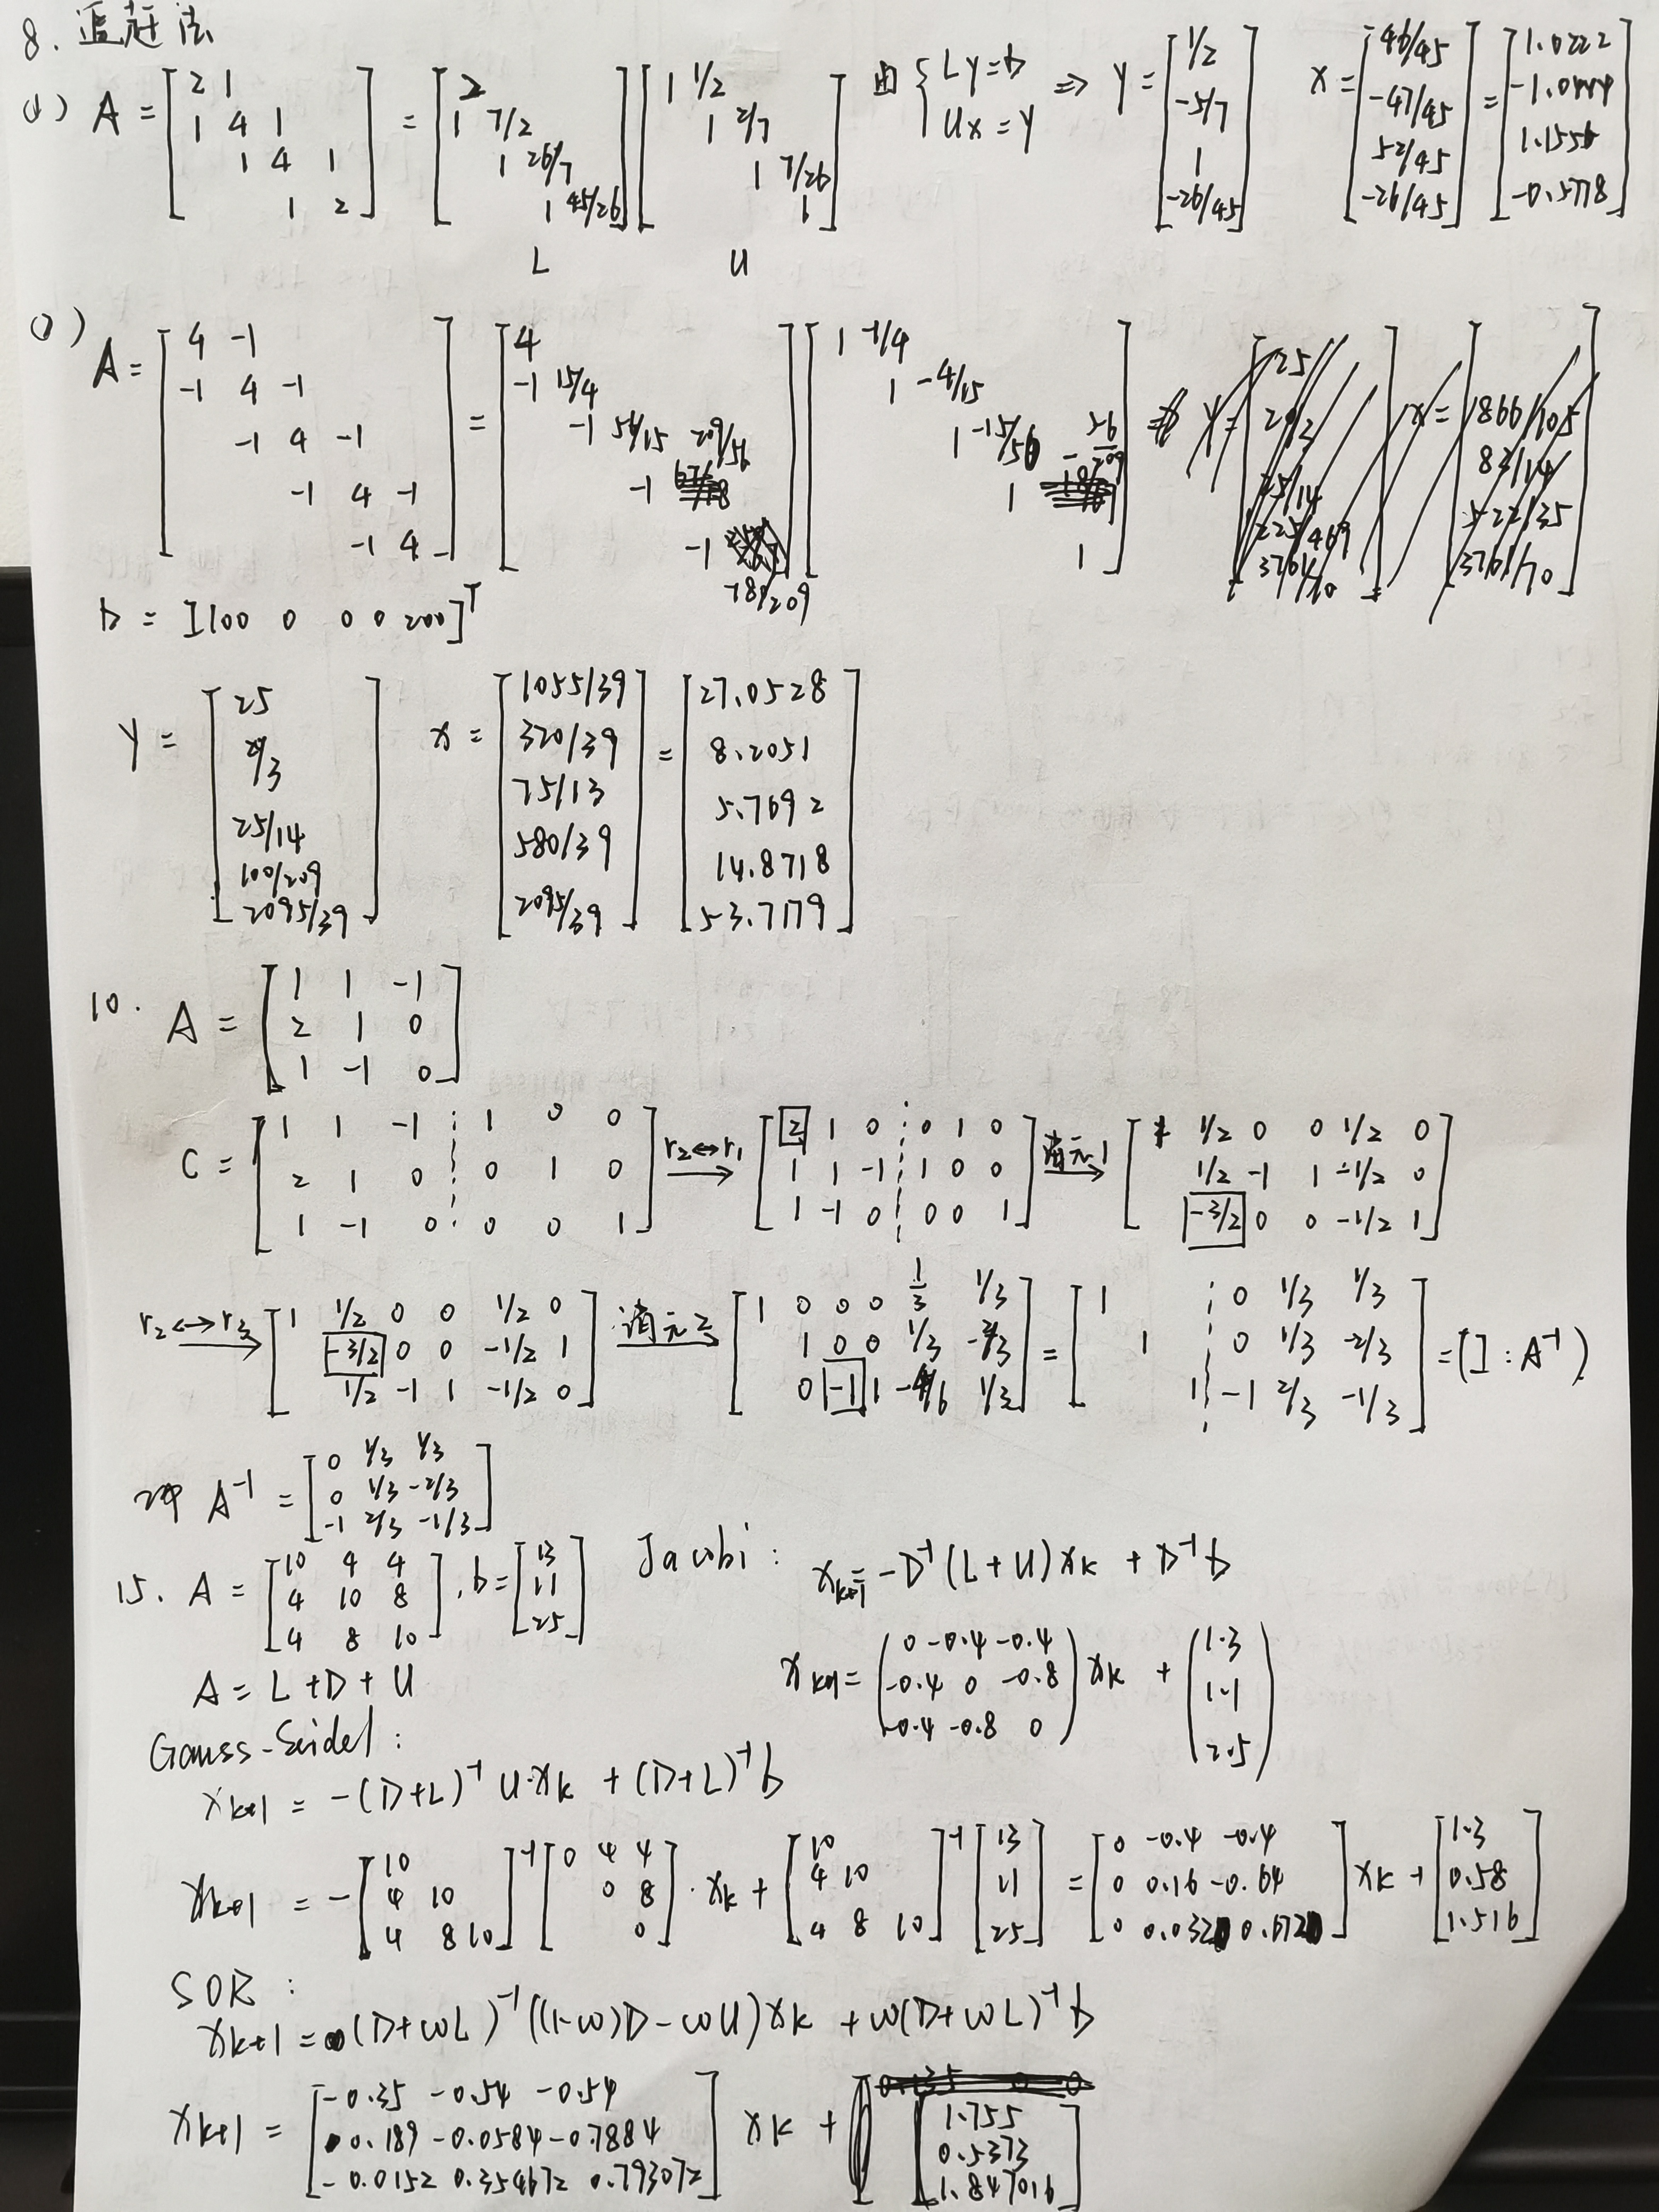 8. 追赶法
(1) A = [2 1; 1 4 1; 1 4 1; 1 2] = [2; 1 7/2; 1 26/7; 1 45/26] [1 1/2; 1 2/7; 1 7/26; 1] 由 { LY=b, UX=Y ⇒ Y = [1/2; -5/7; 1; -26/45] X = [46/45; -47/45; 52/45; -26/45] = [1.0222; -1.0444; 1.1556; -0.5778]
L U
A = [4 -1; -1 4 -1; -1 4 -1; -1 4 -1; -1 4] = [4; -1 15/4; -1 56/15; -1 209/56; -1 781/209] [1 -1/4; 1 -4/15; 1 -15/56; 1 -56/209; 1]
b = [100 0 0 0 200]T
Y = [25; 20/3; 25/14; 100/209; 2095/39] x = [1055/39; 320/39; 75/13; 580/39; 2095/39] = [27.0528; 8.2051; 5.7692; 14.8718; 53.7179]
10. A = [1 1 -1; 2 1 0; 1 -1 0]
C = [1 1 -1 1 0 0; 2 1 0 0 1 0; 1 -1 0 0 0 1] r2↔r1 → [2 1 0 0 1 0; 1 1 -1 1 0 0; 1 -1 0 0 0 1] 消元1 → [1 1/2 0 0 1/2 0; 1/2 -1 1 -1/2 0; -3/2 0 0 -1/2 1]
r2↔r3 → [1 1/2 0 0 1/2 0; -3/2 0 0 -1/2 1; 1/2 -1 1 -1/2 0] 消元2 → [1 0 0 0 1/3 1/3; 1 0 0 1/3 -2/3; 0 -1 1 -4/6 1/3] = [1 0 1/3 1/3; 1 0 1/3 -2/3; 1 -1 2/3 -1/3] = (I : A⁻¹)
A⁻¹ = [0 1/3 1/3; 0 1/3 -2/3; -1 2/3 -1/3]
15. A = [10 4 4; 4 10 8; 4 8 10], b = [13; 11; 25] Jacobi: xk+1 = -D⁻¹(L+U)xk + D⁻¹b
A = L+D+U xk+1 = (0 -0.4 -0.4; -0.4 0 -0.8; -0.4 -0.8 0) xk + (1.3; 1.1; 2.5)
Gauss-Seidel:
xk+1 = -(D+L)⁻¹U·xk + (D+L)⁻¹b
xk+1 = -[10; 4 10; 4 8 10]⁻¹ [0 4 4; 0 8; 0]·xk + [10; 4 10; 4 8 10]⁻¹ [13; 11; 25] = [0 -0.4 -0.4; 0 0.16 -0.64; 0 0.032 0.672] xk + [1.3; 0.58; 1.516]
SOR:
xk+1 = (D+ωL)⁻¹((1-ω)D-ωU)xk + ω(D+ωL)⁻¹b
xk+1 = [-0.35 -0.54 -0.54; 0.189 -0.0584 -0.7884; -0.0152 0.354672 0.793072] xk + [1.755; 0.5373; 1.847016]